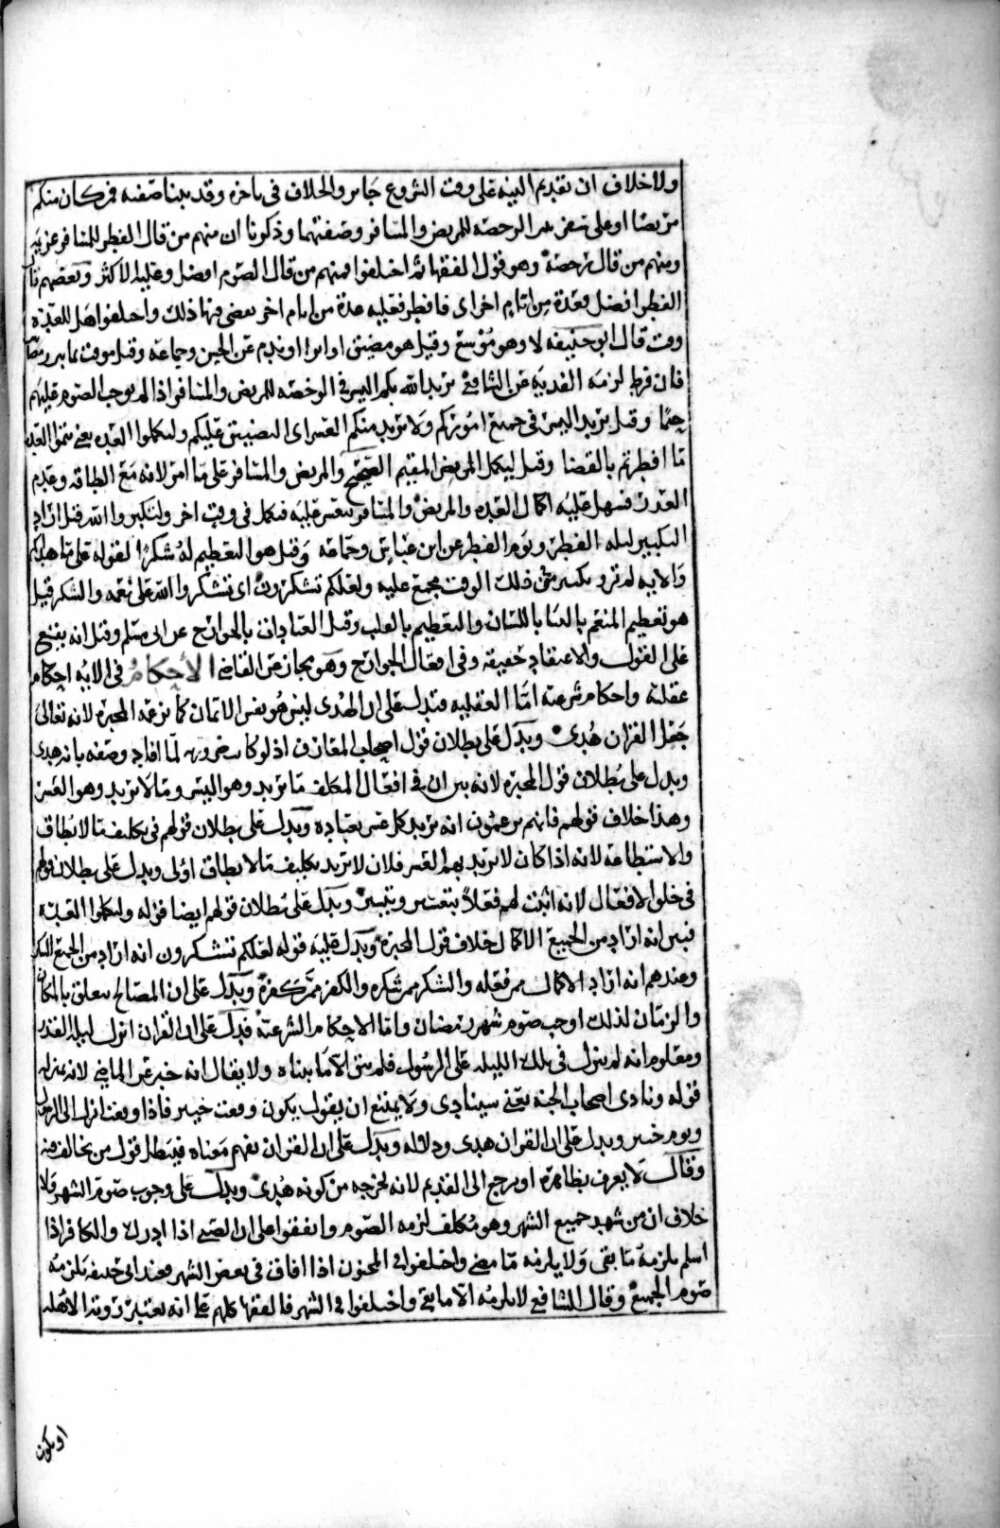 ولا خلاف ان تقديم النيه على وقت الشروع جايز والخلاف في تاخره وقد بينا صفته فمن كان منكم
مريضا او على سفر بين الرخصه للمريض والمسافر وصفتهما وذكرنا ان منهم من قال الفطر للمسافر عزيمه
ومنهم من قال رخصة وهو قول الفقها ثم اختلفوا فمنهم من قال الصوم افضل وعليه الاكثر وبعضهم قا
الفطر افضل فعدة من ايام اخر اى فافطر فعليه عدة من ايام اخر يقضي فيها ذلك واختلفوا هل للعدة
وقت قال ابو حنيفه لا وهو موسع وقيل هو مضيق عن الحسن وجماعه وقيل موقت بما بين رمضا
فان فرط لزمه الفديه عن الشافعي يريد الله بكم اليسر في الرخصه للمريض والمسافر اذا لم يوجب الصوم عليهم
حتما وقيل يريد اليسر في جميع اموركم ولا يريد منكم العسر اى التضييق عليكم ولتكملوا العده يعني تتموا العده
ما افطرتم بالقضا وقيل ليكمل المريض المقيم الصحيح والمريض والمسافر على ما امر لانه مع الطاقه وعدم
العذر فسهل عليه اكمال العده والمريض والمسافر يتعسر عليه فيكمل في وقت اخر ولتكبروا الله قيل اراد
التكبير ليله الفطر ويوم الفطر عن ابن عباس وجماعه وقيل هو التعظيم له شكرا لقوله على ما هداكم
ولعلكم تشكرون اى تشكروا الله على نعمه والشكر قيل
هو تعظيم المنعم بالثنا باللسان والتعظيم بالقلب وقيل العبادات بالجوارح عن ابي مسلم وقيل انه يقع
على القول والاعتقاد حقيقه وفي افعال الجوارح وهو مجاز عن القاضي الاحكام في الايه احكام
عقليه واحكام شرعيه اما العقليه فتدل على ان الهدى ليس هو نفس الايمان كما تزعمه المجبره لانه تعالى
جعل القران هدى ويدل على بطلان قول اصحاب المعارف اذ لو كا ضروريه لما افاد وصفه بانه هدى
ويدل على بطلان قول المجبره لانه بين ان في افعال المكلف ما يريد وهو اليسر وما لا يريد وهو العسر
وهذا خلاف قولهم فانهم يزعمون انه يريد كل عسر بعباده ويدل على بطلان قولهم في تكليف ما لا يطاق
والاستطاعه لانه اذا كان لا يريد بهم العسر فلان لا يريد تكليف ما لا يطاق اولى ويدل على بطلان قولهم
في خلق الافعال لانه اثبت لهم فعلا يتعسر ويتيسر ويدل على بطلان قولهم ايضا قوله ولتكملوا العده
فبين انه اراد من الجميع الاكمال خلاف قول المجبرة ويدل عليه قوله لعلكم تشكرون انه اراد من الجميع الشكر
وعندهم انه اراد الاكمال ممن فعله والشكر ممن شكره والكفر ممن كفره ويدل على ان المصالح تتعلق بالمكان
والزمان لذلك اوجب صوم شهر رمضان واما الاحكام الشرعيه فيدل على ان القران انزل ليله القدر
ومعلوم انه لم ينزل في تلك الليله على الرسول فلم يبق الا ما بيناه ولا يقال انه خبر عن الماضي لانه بمنزله
قوله ونادى اصحاب الجنه يعني سينادى ولا يمتنع ان يقول يكون وقعت خيبر فاذا وقعت انزل الى الرسول
ويوم خيبر ويدل على ان القران هدى ودلاله ويدل على ان القران يفهم معناه فيبطل قول من يخالف فيه
وقال لا يعرف بظاهره او يرجع الى القديم لانه يخرجه من كونه هدى ويدل على وجوب صوم الشهر فلا
خلاف ان من شهد جميع الشهر وهو مكلف لزمه الصوم واتفقوا على ان الصبي اذا ادرك والكافر اذا
اسلم يلزمه ما بقى ولا يلزمه ما مضى واختلفوا في المجنون اذا افاق في بعض الشهر فعند ابي حنيفه يلزمه
صوم الجميع وقال الشافعي لا يلزمه الا ما بقي واختلفوا في الشهر فالفقها كلهم على انه يعتبر رويه الاهله
او يكون